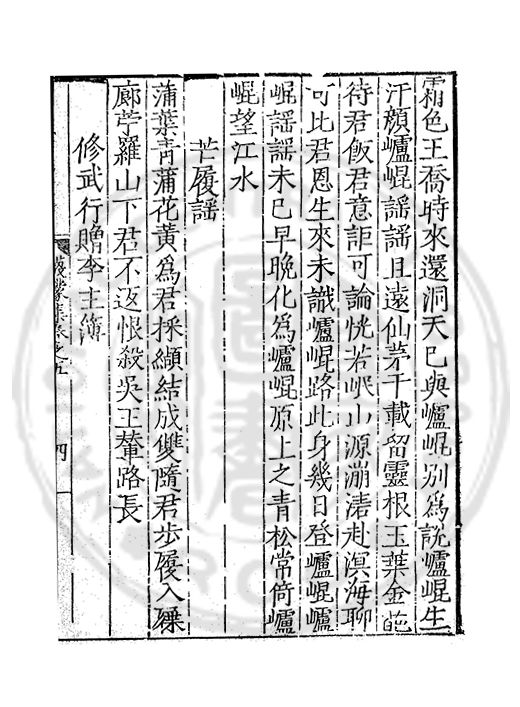 霜色王喬時來還洞天已與嵼崐別為說嵼崐生
汗顏嵼崐謡謡且遠仙茅千載留靈根玉葉金葩
待君飯君意詎可論恍若岷山源湧濤赴溟海聊
可比君恩生來未識嵼崐路此身幾日登嵼崐嵼
崐謡謡未已早晚化為嵼崐原上之青松常倚嵼
崐望江水
芒履謡
蒲葉青蒲花黃為君採纈結成雙隨君步屧入屧
廊苧羅山下君不返恨殺吳王輦路長
修武行贈李主簿
蒙集卷之五
四